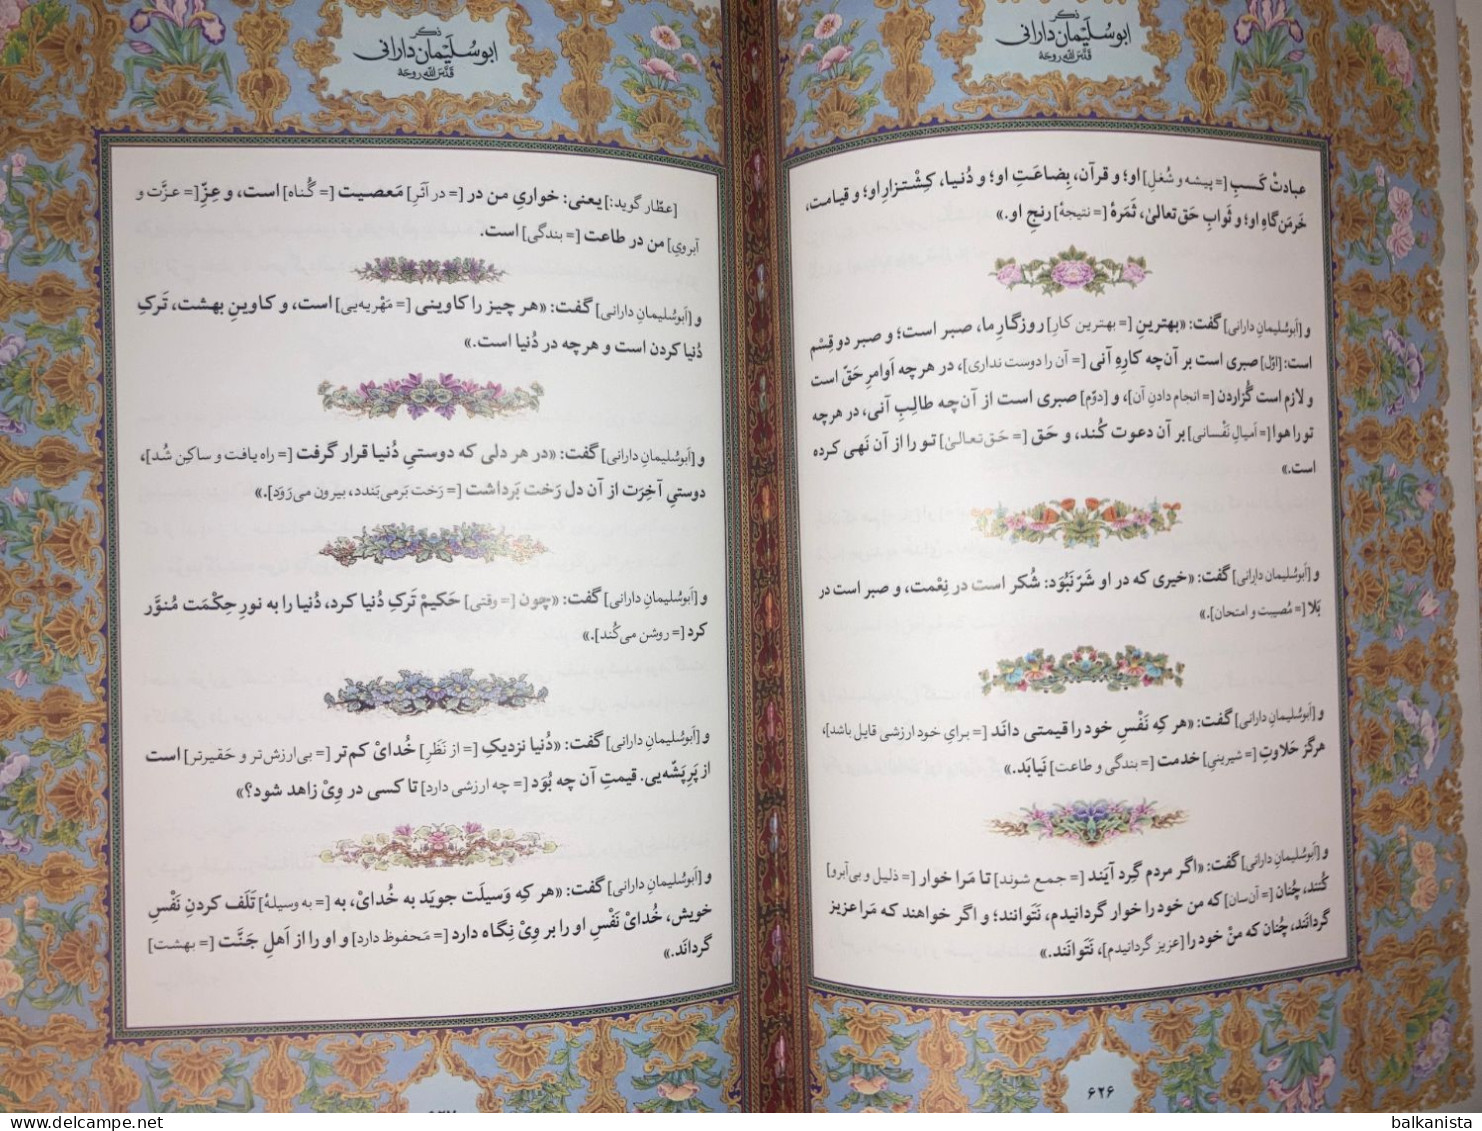 ذکر
ابوسُلَیْمان دارانی
قَدَّسَ اللّٰه روحَهُ
عبادتْ کَسبِ [= پیشه و شُغلِ] او؛ و قرآن، بِضاعَتِ او؛ و دُنیا، کِشْتزارِ او؛ و قیامت،
خَرمَن‌گاهِ او؛ و ثَوابِ حَق‌تعالیٰ، ثَمَرهٔ [= نتیجهٔ] رنجِ او.»
و [اَبوسُلیمانِ دارانی] گفت: «بهترینِ [= بهترین کارِ] روزگارِ ما، صبر است؛ و صبر دو قِسْم
است: [اوّل] صبری است بر آن‌چه کارِهِ آنی [= آن را دوست نداری]، در هرچه اَوامرِ حَقّ است
و لازم است گُزاردن [= انجام دادنِ آن]، و [دوّم] صبری است از آن‌چه طالِبِ آنی، در هرچه
تو را هوا [= اَمیالِ نَفْسانی] بر آن دعوت کُند، و حَق [= حَق‌تعالیٰ] تو را از آن نَهی کرده
است.»
و [اَبوسُلیمانِ دارانی] گفت: «خیری که در او شَرّ نَبُوَد: شُکر است در نِعْمت، و صبر است در
بَلا [= مُصیبت و امتحان].»
و [اَبوسُلیمانِ دارانی] گفت: «هر که نَفْسِ خود را قیمتی دانَد [= برایِ خود ارزشی قایل باشد]،
هرگز حَلاوتِ [= شیرینیِ] خدمت [= بندگی و طاعت] نَیابَد.»
و [اَبوسُلیمانِ دارانی] گفت: «اگر مردم گِرد آیَند [= جمع شوند] تا مَرا خوار [= ذلیل و بی‌آبرو]
کُنند، چُنان [= آن‌سان] که من خود را خوار گردانیدم، نَتَوانند؛ و اگر خواهند که مَرا عزیز
گردانَند، چُنان که منْ خود را [عزیز گردانیدم]، نَتَوانَند.»
۶۲۶
ذکر
ابوسُلَیْمان دارانی
قَدَّسَ اللّٰه روحَهُ
[عطّار گوید:] یعنی: خواریِ من در [= در اَثَرِ] مَعصیت [= گُناه] است، و عِزِّ [= عزّت و
آبرویِ] من در طاعت [= بندگی] است.
و [اَبوسُلیمانِ دارانی] گفت: «هر چیز را کاوینی [= مَهْریه‌یی] است، و کاوینِ بهشت، تَرکِ
دُنیا کردن است و هرچه در دُنیا است.»
و [اَبوسُلیمانِ دارانی] گفت: «در هر دلی که دوستیِ دُنیا قرار گرفت [= راه یافت و ساکِن شُد]،
دوستیِ آخِرَت از آن دل رَخت بَرداشت [= رَخت بَرمی‌بَندد، بیرون می‌رَوَد].»
و [اَبوسُلیمانِ دارانی] گفت: «چون [= وقتی] حَکیمْ تَرکِ دُنیا کرد، دُنیا را به نورِ حِکْمَت مُنوَّر
کرد [= روشن می‌کُند].»
و [اَبوسُلیمانِ دارانی] گفت: «دُنیا نزدیکِ [= از نَظَرِ] خُدایْ کم‌تر [= بی‌ارزش‌تر و حَقیرتر] است
از پَرِ پَشّه‌یی. قیمتِ آن چه بُوَد [= چه ارزشی دارد] تا کسی در وِیْ زاهد شود؟»
و [اَبوسُلیمانِ دارانی] گفت: «هر که وَسیلَت جویَد به خُدایْ، به [= به وسیلهٔ] تَلَف کردنِ نَفْسِ
خویش، خُدایْ نَفْسِ او را بر وِیْ نِگاه دارد [= مَحفوظ دارد] و او را از اَهلِ جَنَّت [= بهشت]
گردانَد.»
balkanista